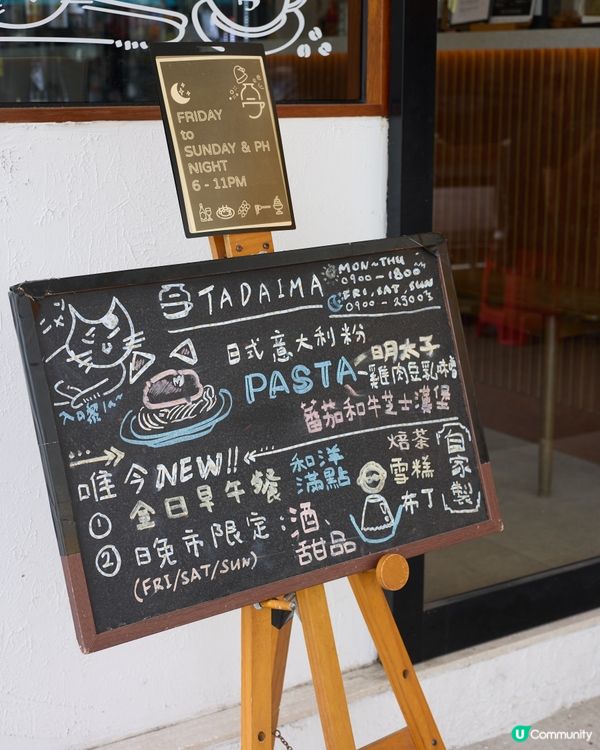 FRIDAY
to
SUNDAY & PH
NIGHT
6 - 11PM
TADAIMA
MON~THU
0900-1800
FRI, SAT, SUN
0900-2300
日式意大利粉
PASTA
明太子
雞肉豆乳味噌
蕃茄和牛芝士漢堡
入口黎la~
唯今NEW!!
① 全日早午餐
和洋
滿點
② 晚市限定:酒、
甜品
(FRI/SAT/SUN)
焙茶
雪糕
布丁
自家製
U Community